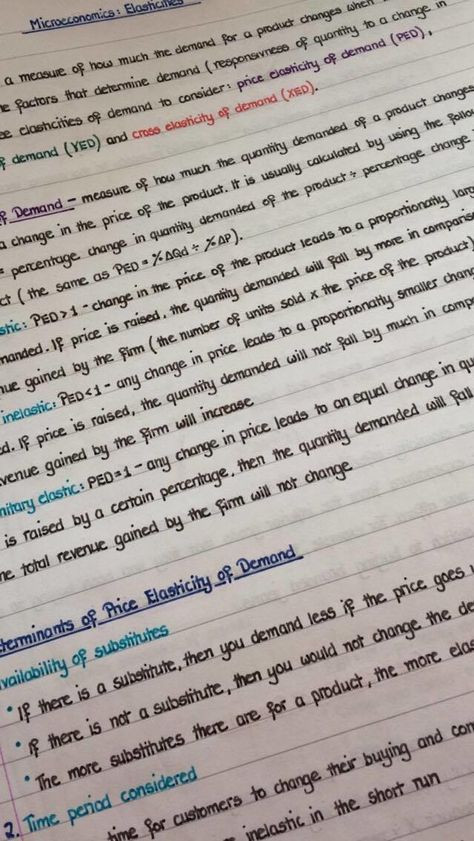 Microeconomics: Elasticities
a measure of how much the demand for a product changes when
factors that determine demand (responsivness of quantity to a change in
elasticities of demand to consider: price elasticity of demand (PED),
demand (YED) and cross elasticity of demand (XED).
of Demand - measure of how much the quantity demanded of a product changes
a change in the price of the product. It is usually calculated by using the
= percentage change in quantity demanded of the product ÷ percentage change
(the same as PED = %ΔQd ÷ %ΔP).
PED > 1 - change in the price of the product leads to a proportionatly
If price is raised, the quantity demanded will fall by more in
gained by the firm (the number of units sold x the price of the product)
inelastic: PED < 1 - any change in price leads to a proportionatly smaller
If price is raised, the quantity demanded will not fall by much in
revenue gained by the firm will increase
elastic: PED = 1 - any change in price leads to an equal change in
is raised by a certain percentage, then the quantity demanded will fall
total revenue gained by the firm will not change
Determinants of Price Elasticity of Demand
Availability of substitutes
• If there is a substitute, then you demand less if the price goes
• If there is not a substitute, then you would not change the
• The more substitutes there are for a product, the more
2. Time period considered
time for customers to change their buying and
inelastic in the short run